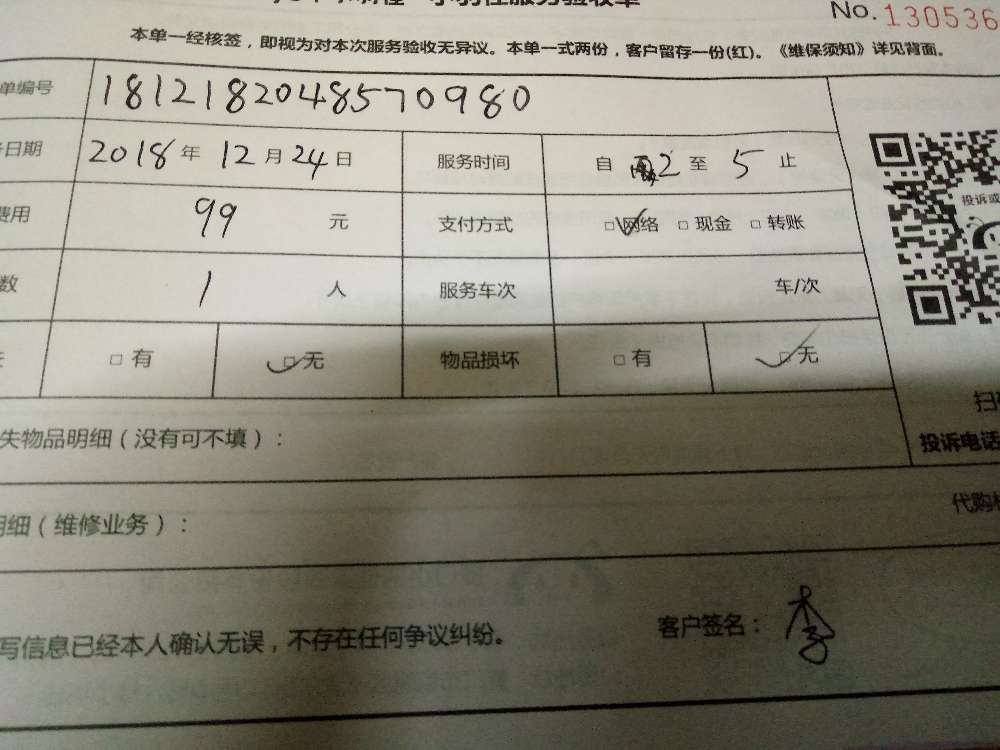 No.130536
本单一经核签，即视为对本次服务验收无异议。本单一式两份，客户留存一份(红)。《维保须知》详见背面。
单编号 1812182048570980
日期 2018 年 12 月 24 日 服务时间 自 2 至 5 止
费用 99 元 支付方式 □网络 □现金 □转账
数 1 人 服务车次 车/次
□有 □无 物品损坏 □有 □无
投诉或
扫
投诉电话
失物品明细（没有可不填）：
代购
明细（维修业务）：
写信息已经本人确认无误，不存在任何争议纠纷。 客户签名：李